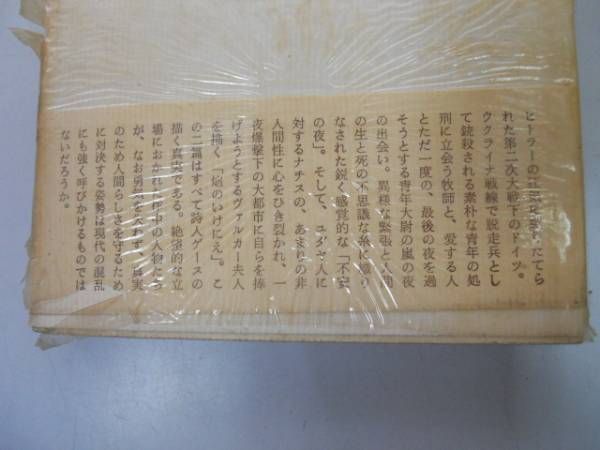 ヒーラーの狂気に駆りたてら
れた第二次大戦下のドイツ。
ウクライナ戦線で脱走兵とし
て銃殺される素朴な青年の処
刑に立会う牧師と、愛する人
とただ一度の、最後の夜を過
そうとする青年大尉の嵐の夜
の出会い。異様な緊張と人間
の生と死の不思議な糸に織り
なされた鋭く感覚的な「不安
の夜」。そして、ユダヤ人に
対するナチスの、あまりの非
人間性に心をひき裂かれ、一
夜爆撃下の大都市に自らを捧
げようとするヴァルカー夫人
を描く「焰のいけにえ」。こ
の二篇はすべて詩人ゲースの
描く真実である。絶望的な立
場におかれた作中の人物たち
が、なお勇気を失わず、真実
のため人間らしさを守るため
に対決する姿勢は現代の混乱
にも強く呼びかけるものでは
ないだろうか。